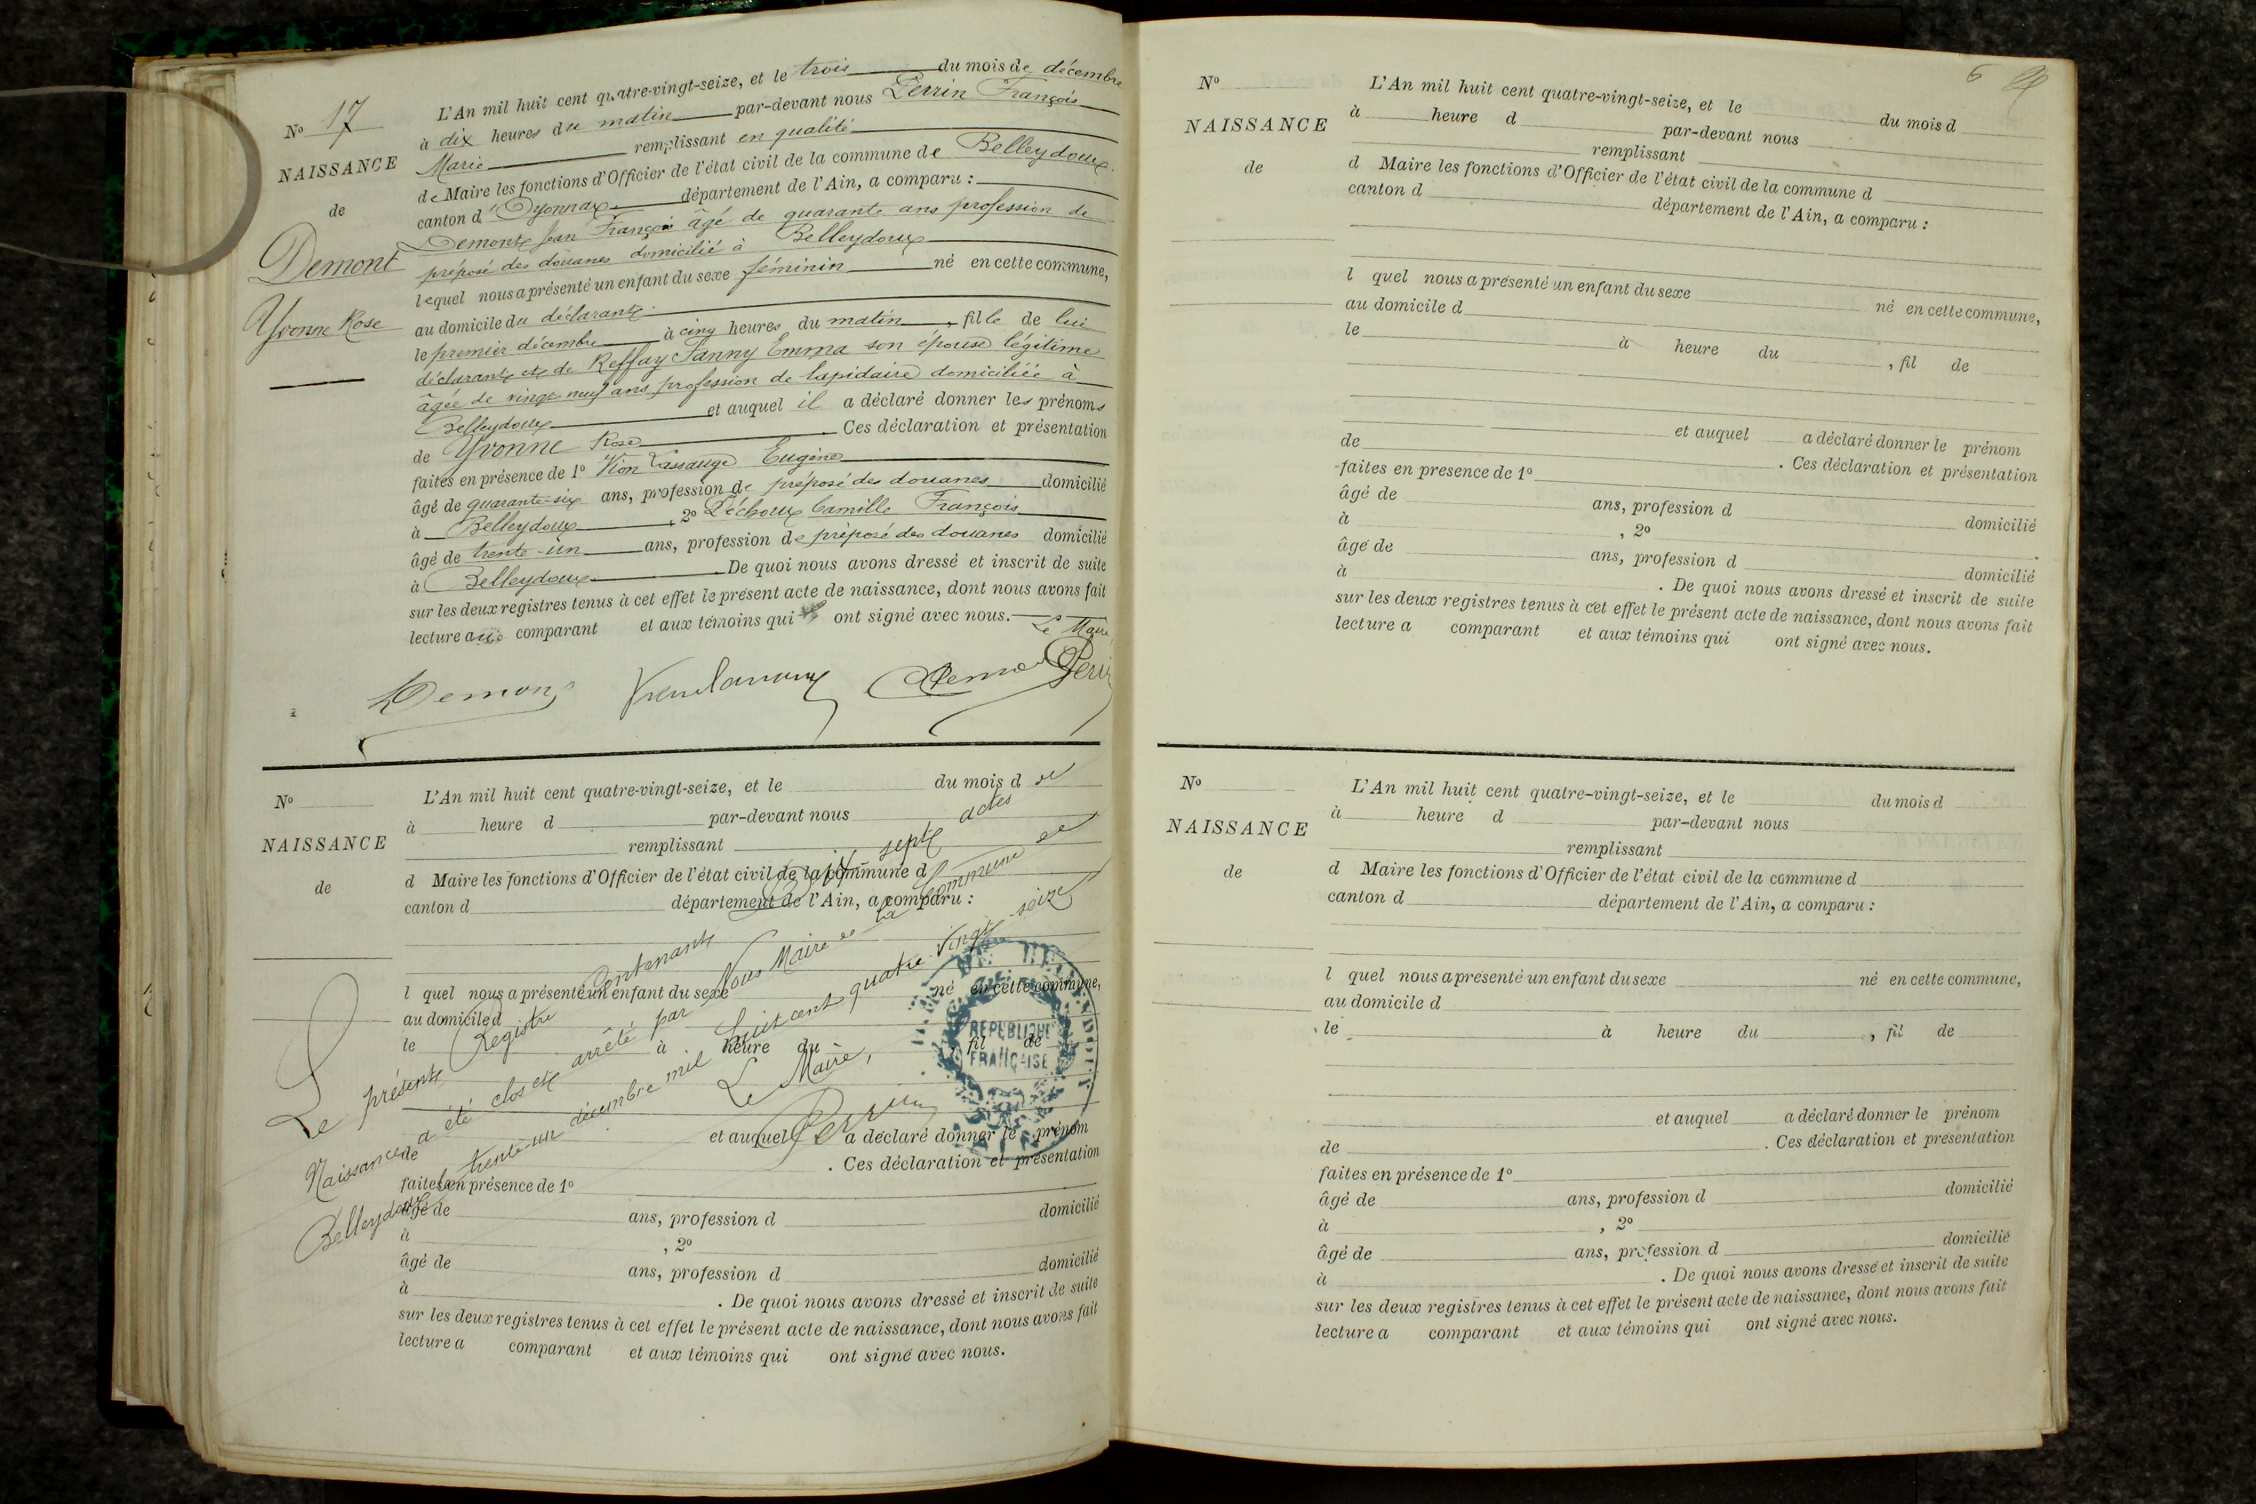 N° 17
NAISSANCE
de
Demont
Yvonne Rose
L'An mil huit cent quatre-vingt-seize, et le trois du mois de décembre
à dix heures du matin par-devant nous Perrin François
Marie remplissant en qualité
de Maire les fonctions d'Officier de l'état civil de la commune de Belleydoux
canton d'Oyonnax département de l'Ain, a comparu :
Demont Jean François âgé de quarante ans profession de
préposé des douanes domicilié à Belleydoux
lequel nous a présenté un enfant du sexe féminin né en cette commune,
au domicile du déclarant
le premier décembre à cinq heures du matin, fille de lui
déclarant et de Reffay Fanny Emma son épouse légitime
âgée de vingt neuf ans, profession de lapidaire domiciliée à
Belleydoux et auquel il a déclaré donner les prénoms
de Yvonne Rose. Ces déclaration et présentation
faites en présence de 1° Vion Eugène
âgé de quarante-six ans, profession de préposé des douanes domicilié
à Belleydoux, 2° Camille François
âgé de trente-un ans, profession de préposé des douanes domicilié
à Belleydoux. De quoi nous avons dressé et inscrit de suite
sur les deux registres tenus à cet effet le présent acte de naissance, dont nous avons fait
lecture au comparant et aux témoins qui ont signé avec nous.
Le Maire
Demont
N°
NAISSANCE
de
L'An mil huit cent quatre-vingt-seize, et le du mois d
à heure d par-devant nous
remplissant
d Maire les fonctions d'Officier de l'état civil de la commune d
canton d département de l'Ain, a comparu :
l quel nous a présenté un enfant du sexe né en cette commune,
au domicile d
le à heure du , fil de
et auquel a déclaré donner le prénom
de . Ces déclaration et présentation
faites en présence de 1°
âgé de ans, profession d domicilié
à , 2°
âgé de ans, profession d domicilié
à . De quoi nous avons dressé et inscrit de suite
sur les deux registres tenus à cet effet le présent acte de naissance, dont nous avons fait
lecture a comparant et aux témoins qui ont signé avec nous.
Le présent Registre Contenant dix sept actes de
Naissance a été clos et arrêté par Nous Maire de la Commune de
Belleydoux le trente-un décembre mil huit cent quatre-vingt-seize
Le Maire,
Perrin
REPUBLIQUE
FRANÇAISE
6
N°
NAISSANCE
de
L'An mil huit cent quatre-vingt-seize, et le du mois d
à heure d par-devant nous
remplissant
d Maire les fonctions d'Officier de l'état civil de la commune d
canton d département de l'Ain, a comparu :
l quel nous a présenté un enfant du sexe né en cette commune,
au domicile d
le à heure du , fil de
et auquel a déclaré donner le prénom
de . Ces déclaration et présentation
faites en presence de 1°
âgé de ans, profession d domicilié
à , 2°
âgé de ans, profession d domicilié
à . De quoi nous avons dressé et inscrit de suite
sur les deux registres tenus à cet effet le présent acte de naissance, dont nous avons fait
lecture a comparant et aux témoins qui ont signé avec nous.
N°
NAISSANCE
de
L'An mil huit cent quatre-vingt-seize, et le du mois d
à heure d par-devant nous
remplissant
d Maire les fonctions d'Officier de l'état civil de la commune d
canton d département de l'Ain, a comparu :
l quel nous a présenté un enfant du sexe né en cette commune,
au domicile d
le à heure du , fil de
et auquel a déclaré donner le prénom
de . Ces déclaration et présentation
faites en présence de 1°
âgé de ans, profession d domicilié
à , 2°
âgé de ans, profession d domicilié
à . De quoi nous avons dressé et inscrit de suite
sur les deux registres tenus à cet effet le présent acte de naissance, dont nous avons fait
lecture a comparant et aux témoins qui ont signé avec nous.